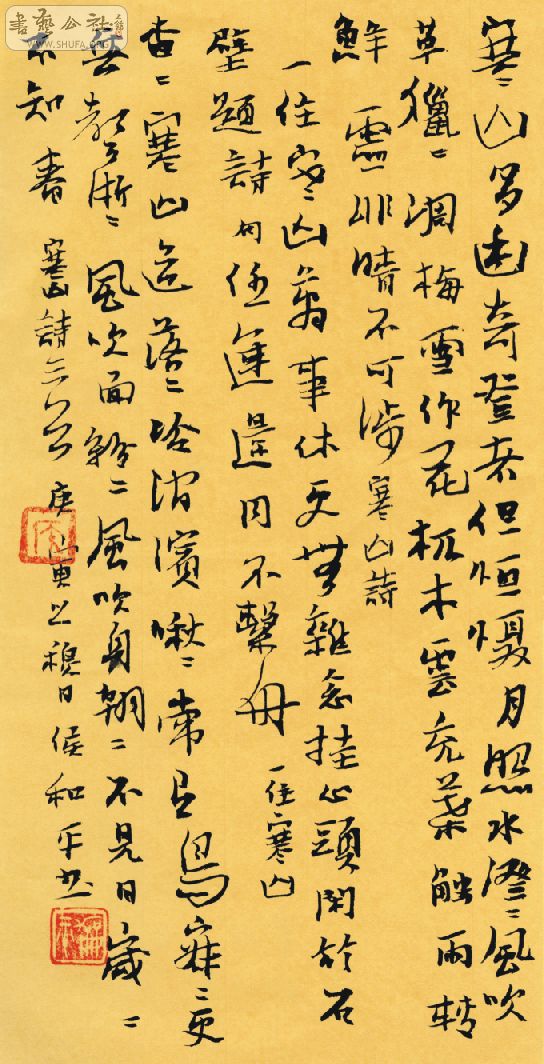 書藝公社
WWW.SHUFA.ORG
寒山多幽奇登者但恒懾月照水澄〻風吹
草獵〻凋梅雪作花杌木雲充葉觸雨轉
鮮靈非晴不可涉 寒山詩
一住寒山萬事休更無雜念挂心頭閑於石
壁題詩句任運還同不繫舟 一住寒山
杳〻寒山道落〻冷澗濱啾〻常有鳥寂〻更
無淅〻風吹面紛〻風吹身朝〻不見日歲〻
不知春 寒山詩三首 庚寅之穐日侯和平書